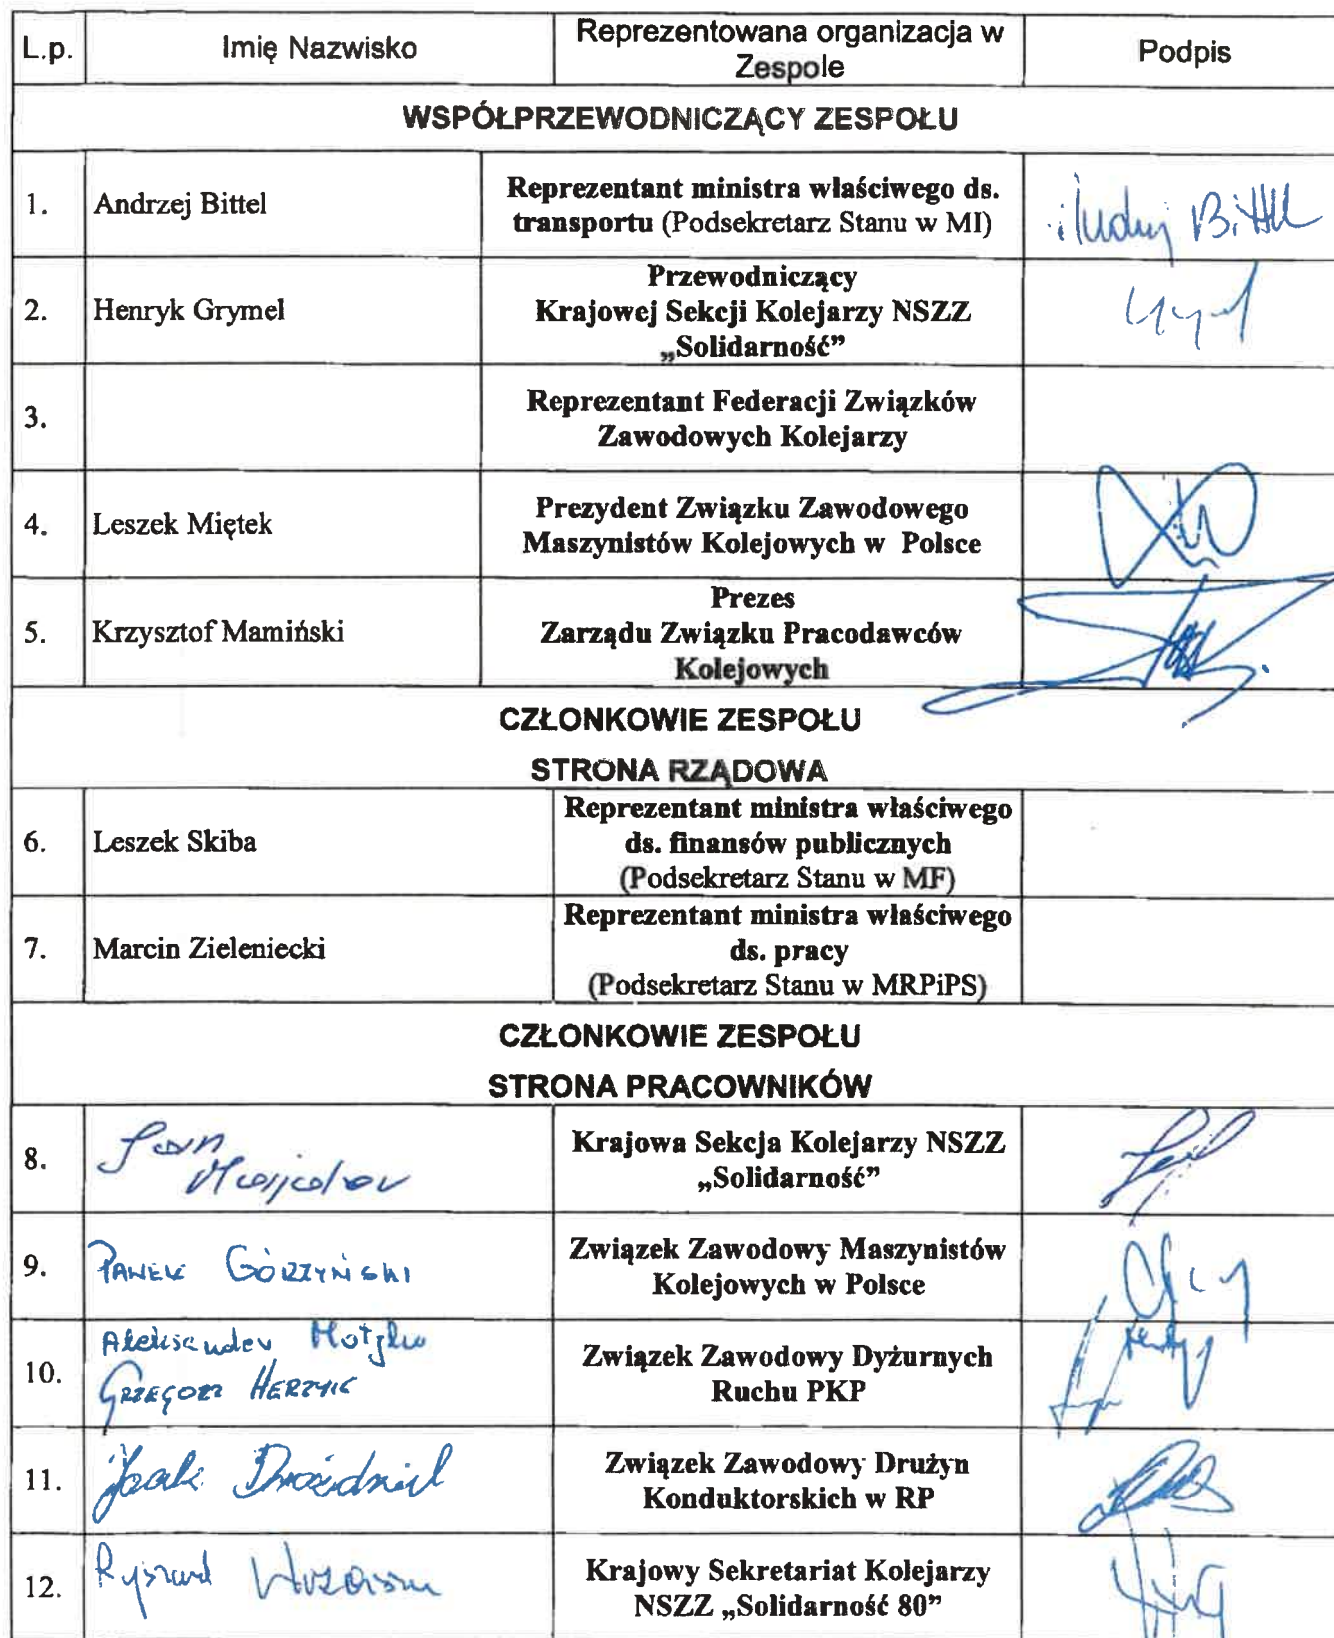 L.p. Imię Nazwisko Reprezentowana organizacja w Zespole Podpis
WSPÓŁPRZEWODNICZĄCY ZESPOŁU
1. Andrzej Bittel Reprezentant ministra właściwego ds.
transportu (Podsekretarz Stanu w MI)
Bittel
2. Henryk Grymel Przewodniczący
Krajowej Sekcji Kolejarzy NSZZ
„Solidarność”
3. Reprezentant Federacji Związków
Zawodowych Kolejarzy
4. Leszek Miętek Prezydent Związku Zawodowego
Maszynistów Kolejowych w Polsce
5. Krzysztof Mamiński Prezes
Zarządu Związku Pracodawców
Kolejowych
CZŁONKOWIE ZESPOŁU
STRONA RZĄDOWA
6. Leszek Skiba Reprezentant ministra właściwego
ds. finansów publicznych
(Podsekretarz Stanu w MF)
7. Marcin Zieleniecki Reprezentant ministra właściwego
ds. pracy
(Podsekretarz Stanu w MRPiPS)
CZŁONKOWIE ZESPOŁU
STRONA PRACOWNIKÓW
8. Jan Krajowa Sekcja Kolejarzy NSZZ
„Solidarność”
9. PAWEŁ GÓRZYŃSKI Związek Zawodowy Maszynistów
Kolejowych w Polsce
10. Aleksander Motyka
GRZEGORZ HERZYK Związek Zawodowy Dyżurnych
Ruchu PKP
11. Jacek Związek Zawodowy Drużyn
Konduktorskich w RP
12. Ryszard Krajowy Sekretariat Kolejarzy
NSZZ „Solidarność 80”